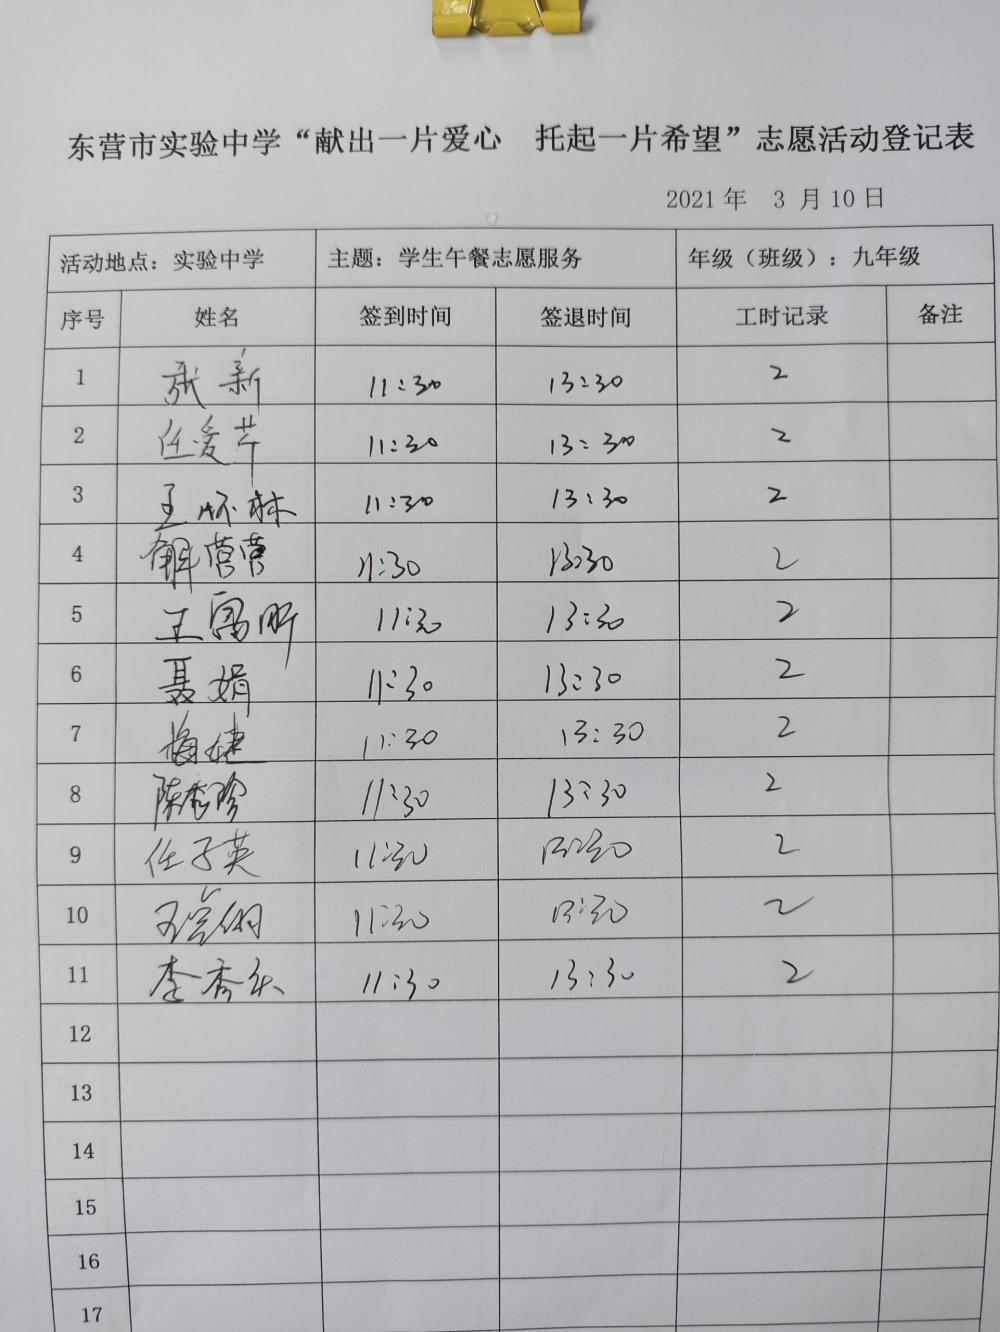 东营市实验中学“献出一片爱心　托起一片希望”志愿活动登记表
2021年　3 月10日
活动地点：实验中学　主题：学生午餐志愿服务　年级（班级）：九年级
序号　姓名　签到时间　签退时间　工时记录　备注
1　张新　11:30　13:30　2
2　任爱芹　11:30　13:30　2
3　王怀林　11:30　13:30　2
4　解营营　11:30　13:30　2
5　王富昕　11:30　13:30　2
6　聂娟　11:30　13:30　2
7　梅婕　11:30　13:30　2
8　陈秀珍　11:30　13:30　2
9　任子英　11:30　13:30　2
10　11:30　13:30　2
11　李秀乐　11:30　13:30　2
12
13
14
15
16
17